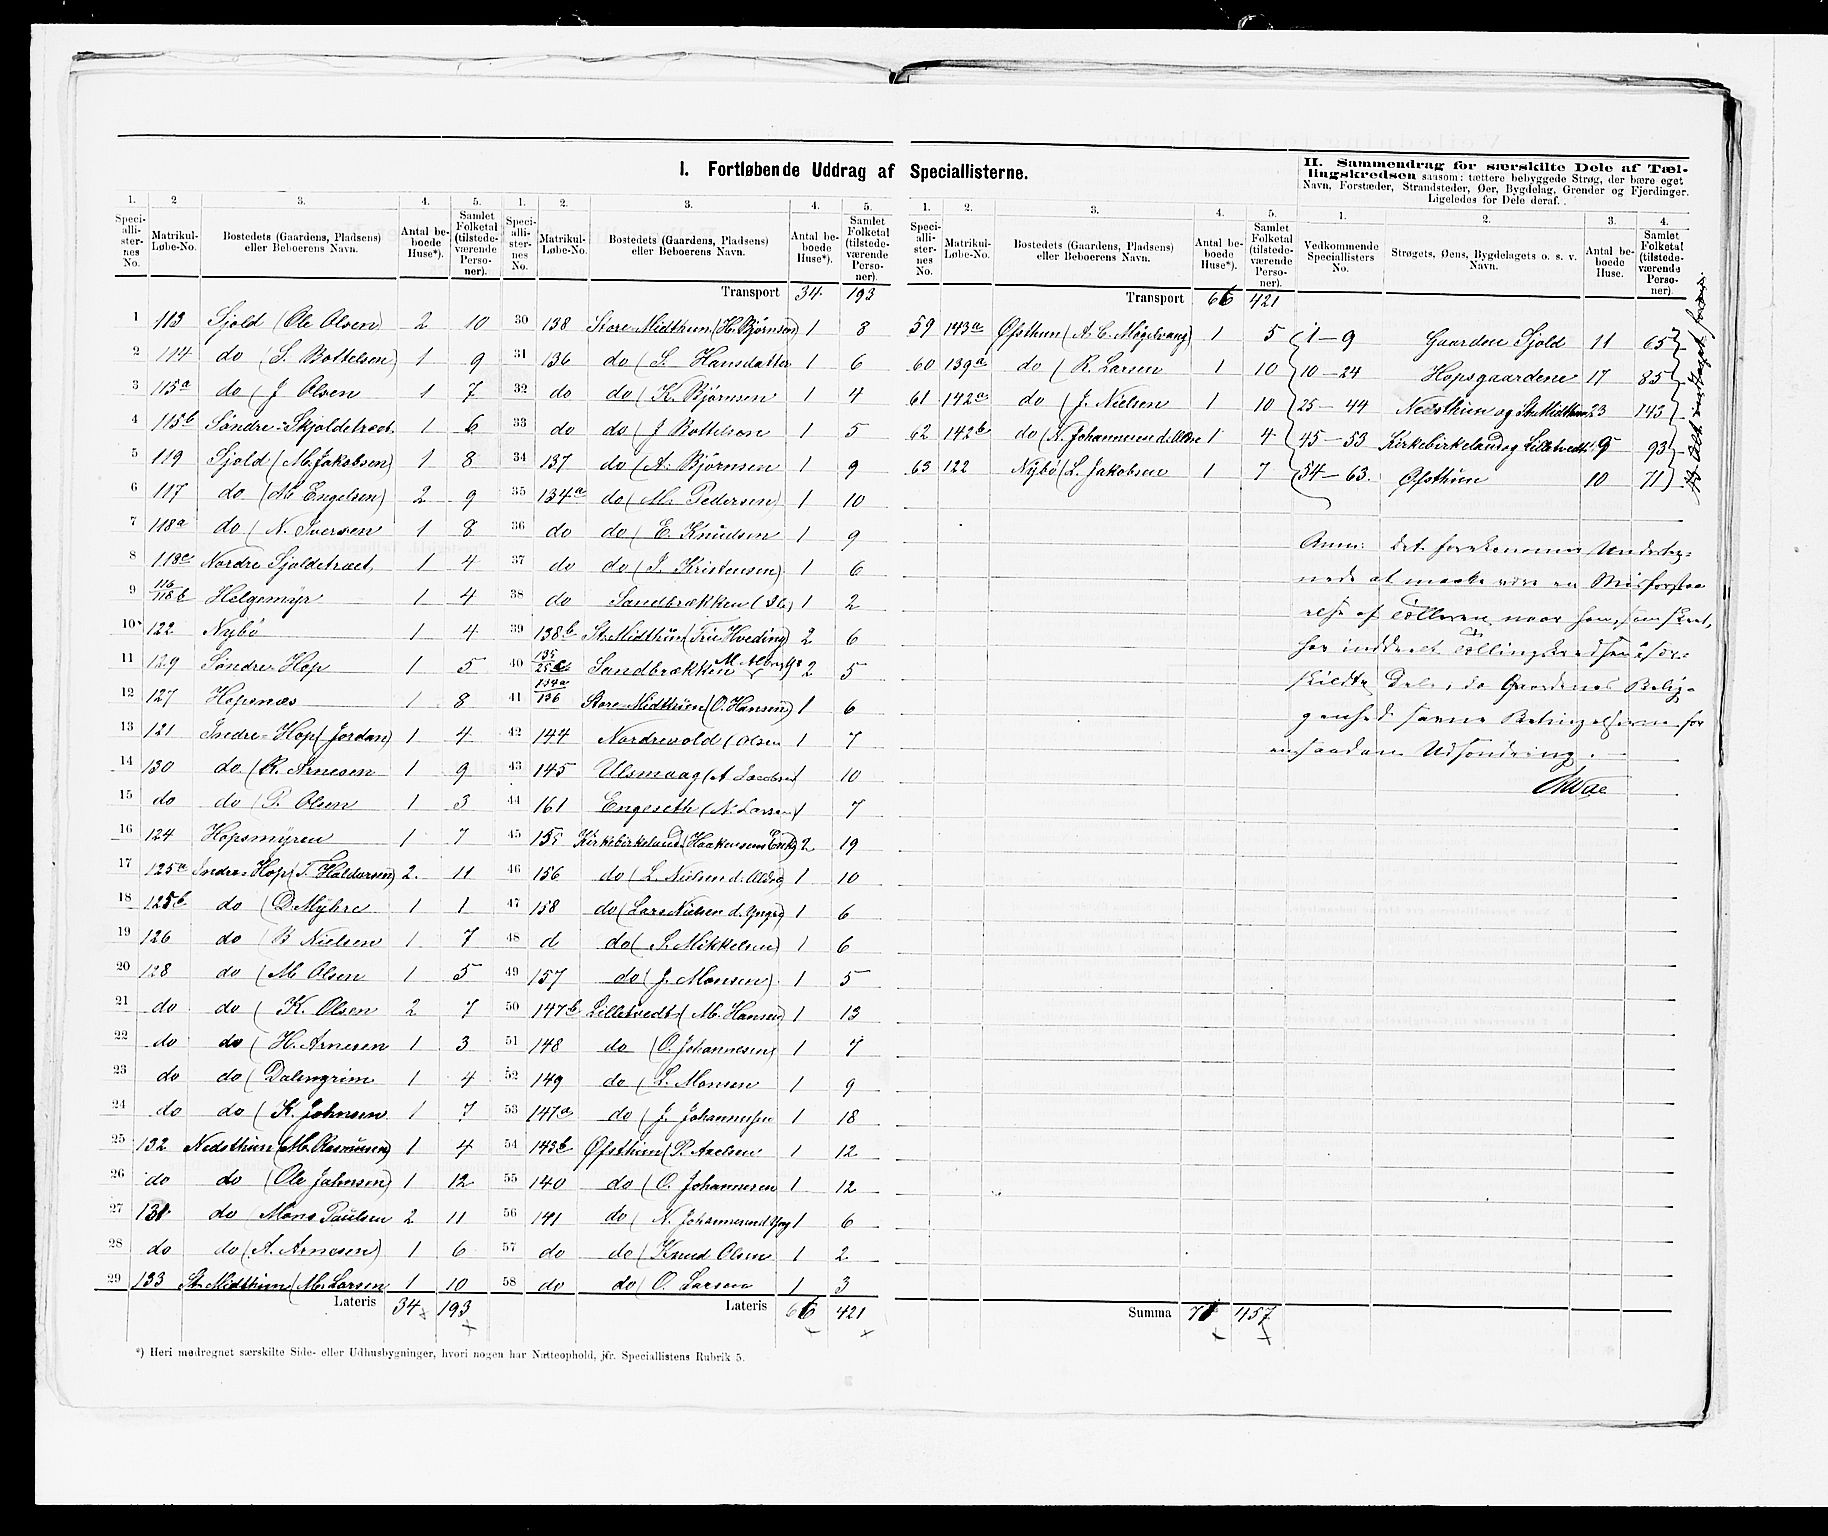 I. Fortløbende Uddrag af Speciallisterne.
1. 2 3. 4. 5.
Speciallisternes No. Matrikul-Løbe-No. Bostedets (Gaardens, Pladsens) eller Beboerens Navn. Antal beboede Huse*). Samlet Folketal (tilstedeværende Personer).
1 113 Sjold (Ole Olsen) 2 10
2 114 do (S. Bottelsen) 1 9
3 115a do (J Olsen 1 7
4 115b Søndre-Skjoldetræet 1 6
5 119 Sjold (M. Jakobsen) 1 8
6 117 do (M. Engelsen) 2 9
7 118a do (N. Iversen 1 8
8 118c Nordre Sjoldetræet 1 4
9 116/118b Helgemyr 1 4
10 122 Nybø 1 4
11 129 Søndre-Hop 1 5
12 127 Hopsnæs 1 8
13 121 Indre-Hop (Jordan) 1 4
14 130 do (R. Arnesen 1 9
15 do do (P. Olsen 1 3
16 124 Hopsmyren 1 7
17 125a Indre-Hop (T. Haldorsen) 2. 11
18 125b do (D. Myhre 1 1
19 126 do (B Nielsen 1 7
20 128 do (M Olsen 1 5
21 do do (K. Olsen 2 7
22 do do (H. Arnesen 1 3
23 do do (Dalengrim 1 4
24 do do (K. Johnsen 1 7
25 132 Nedsthun (M. Rasmussen) 1 4
26 do do (Ole Johnsen) 1 12
27 131 do (Mons Paulsen 2 11
28 do do (A. Arnesen) 1 6
29 133 St. Midthun (M. Larsen 1 10
Lateris 34 193
*) Heri medregnet særskilte Side- eller Udhusbygninger, hvori nogen har Natteophold, jfr. Speciallistens Rubrik 5.
1. 2. 3. 4. 5.
Speciallisternes No. Matrikul-Løbe-No. Bostedets (Gaardens, Pladsens) eller Beboerens Navn. Antal beboede Huse*). Samlet Folketal (tilstedeværende Personer).
Transport 34. 193
30 138 Store-Midthun (H. Bjørnsen) 1 8
31 136 do (S. Hansdatter 1 6
32 do do (K. Bjørnsen 1 4
33 do do (J Bottelsen 1 5
34 137 do (A. Bjørnsen 1 9
35 134a do (M. Pedersen) 1 10
36 do do (E. Knudsen 1 9
37 do do (J. Kristensen) 1 6
38 do Sandbrækken 1 2
39 138b St. Midthun (Hveding) 2 6
40 Sandbrækken 2 5
41 134a/136 Store-Midthun (O. Hansen) 1 6
42 144 Nordrevold (Olsen 1 7
43 145 Ulsmaag (A Jacobsen 1 10
44 161 Engeseth (N. Larsen 1 7
45 155 Kirkebirkeland (Haakensens Enke) 2 19
46 156 do (L. Nielsen d. Ældre 1 10
47 158 do (Lars Nielsen d. Yngre) 1 6
48 d do (S. Mikkelsen) 1 6
49 157 do (J. Monsen) 1 5
50 147b Lilletvedt (M. Hansen) 1 13
51 148 do (O. Johannesen) 1 7
52 149 do (L. Monsen 1 9
53 147a do (J. Johannessen 1 18
54 143b Øfsthun (P. Axelsen 1 12
55 140 do (O. Johannesen 1 12
56 141 do (N. Johannesen d Yng 1 6
57 do do (Knud Olsen 1 2
58 do do (O. Larsen 1 3
Lateris 66 421
1. 2. 3. 4. 5.
Speciallisternes No. Matrikul-Løbe-No. Bostedets (Gaardens, Pladsens) eller Beboerens Navn. Antal beboede Huse*). Samlet Folketal (tilstedeværende Personer).
Transport 66 421
59 143a Øfsthun (A. C. Møgelvang) 1 5
60 139a do (R. Larsen 1 10
61 142a do (J. Nielsen 1 10
62 142b do (N. Johannesen d. Ældre 1 4
63 122 Nybø (L. Jakobsen 1 7
Summa 71 457
II. Sammendrag for særskilte Dele af Tællingskredsen saasom: tættere bebyggede Strøg, der bære eget
Navn, Forstæder, Strandsteder, Øer, Bygdelag, Grender og Fjerdinger.
Ligeledes for Dele deraf.
1. 2. 3. 4.
Vedkommende Speciallisters No. Strøgets, Øens, Bygdelagets o. s. v. Navn. Antal beboede Huse. Samlet Folketal (tilstedeværende Personer).
1 — 9 Gaarden Sjold 11 65
10 — 24 Hopsgaardene 17 85
25 — 44 Nedsthun og St. Midthun 23 143
45 — 53 Kirkebirkeland og Lilletvedt 9 93
54 — 63. Øfsthun 10 71
Anm: Det forekommer Undertegnede at maatte være en Misforstaaelse af Tælleren naar han, som skeet,
har inddelt Tællingskredsen i særskildte Dele, da Gaardenes Beliggenhed savne Betingelserne for
en saadan Udsondring.